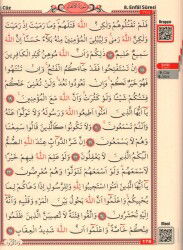 Cüz
8. Enfâl Sûresi
فَلَمْ تَقْتُلُوهُمْ وَلٰكِنَّ اللّٰهَ قَتَلَهُمْ وَمَا رَمَيْتَ اِذْ رَمَيْتَ
وَلٰكِنَّ اللّٰهَ رَمٰى وَلِيُبْلِيَ الْمُؤْمِنِينَ مِنْهُ بَلَاءً حَسَنًا اِنَّ اللّٰهَ
سَمِيعٌ عَلِيمٌ ۝١٧ ذٰلِكُمْ وَاَنَّ اللّٰهَ مُوهِنُ كَيْدِ الْكَافِرِينَ ۝١٨
اِنْ تَسْتَفْتِحُوا فَقَدْ جَاءَكُمُ الْفَتْحُ وَاِنْ تَنْتَهُوا
فَهُوَ خَيْرٌ لَكُمْ وَاِنْ تَعُودُوا نَعُدْ وَلَنْ تُغْنِيَ عَنْكُمْ فِئَتُكُمْ
شَيْـًٔا وَلَوْ كَثُرَتْ وَاَنَّ اللّٰهَ مَعَ الْمُؤْمِنِينَ ۝١٩ يَا اَيُّهَا
الَّذِينَ اٰمَنُوا اَطِيعُوا اللّٰهَ وَرَسُولَهُ وَلَا تَوَلَّوْا عَنْهُ وَاَنْتُمْ
تَسْمَعُونَ ۝٢٠ وَلَا تَكُونُوا كَالَّذِينَ قَالُوا سَمِعْنَا وَهُمْ لَا
يَسْمَعُونَ ۝٢١ اِنَّ شَرَّ الدَّوَابِّ عِنْدَ اللّٰهِ الصُّمُّ الْبُكْمُ
الَّذِينَ لَا يَعْقِلُونَ ۝٢٢ وَلَوْ عَلِمَ اللّٰهُ فِيهِمْ خَيْرًا لَاَسْمَعَهُمْ وَلَوْ
اَسْمَعَهُمْ لَتَوَلَّوْا وَهُمْ مُعْرِضُونَ ۝٢٣ يَا اَيُّهَا الَّذِينَ اٰمَنُوا
اسْتَجِيبُوا لِلّٰهِ وَلِلرَّسُولِ اِذَا دَعَاكُمْ لِمَا يُحْيِيكُمْ
وَاعْلَمُوا اَنَّ اللّٰهَ يَحُولُ بَيْنَ الْمَرْءِ وَقَلْبِهِ وَاَنَّهُ
اِلَيْهِ تُحْشَرُونَ ۝٢٤ وَاتَّقُوا فِتْنَةً لَا تُصِيبَنَّ الَّذِينَ ظَلَمُوا
مِنْكُمْ خَاصَّةً وَاعْلَمُوا اَنَّ اللّٰهَ شَدِيدُ الْعِقَابِ ۝٢٥
178